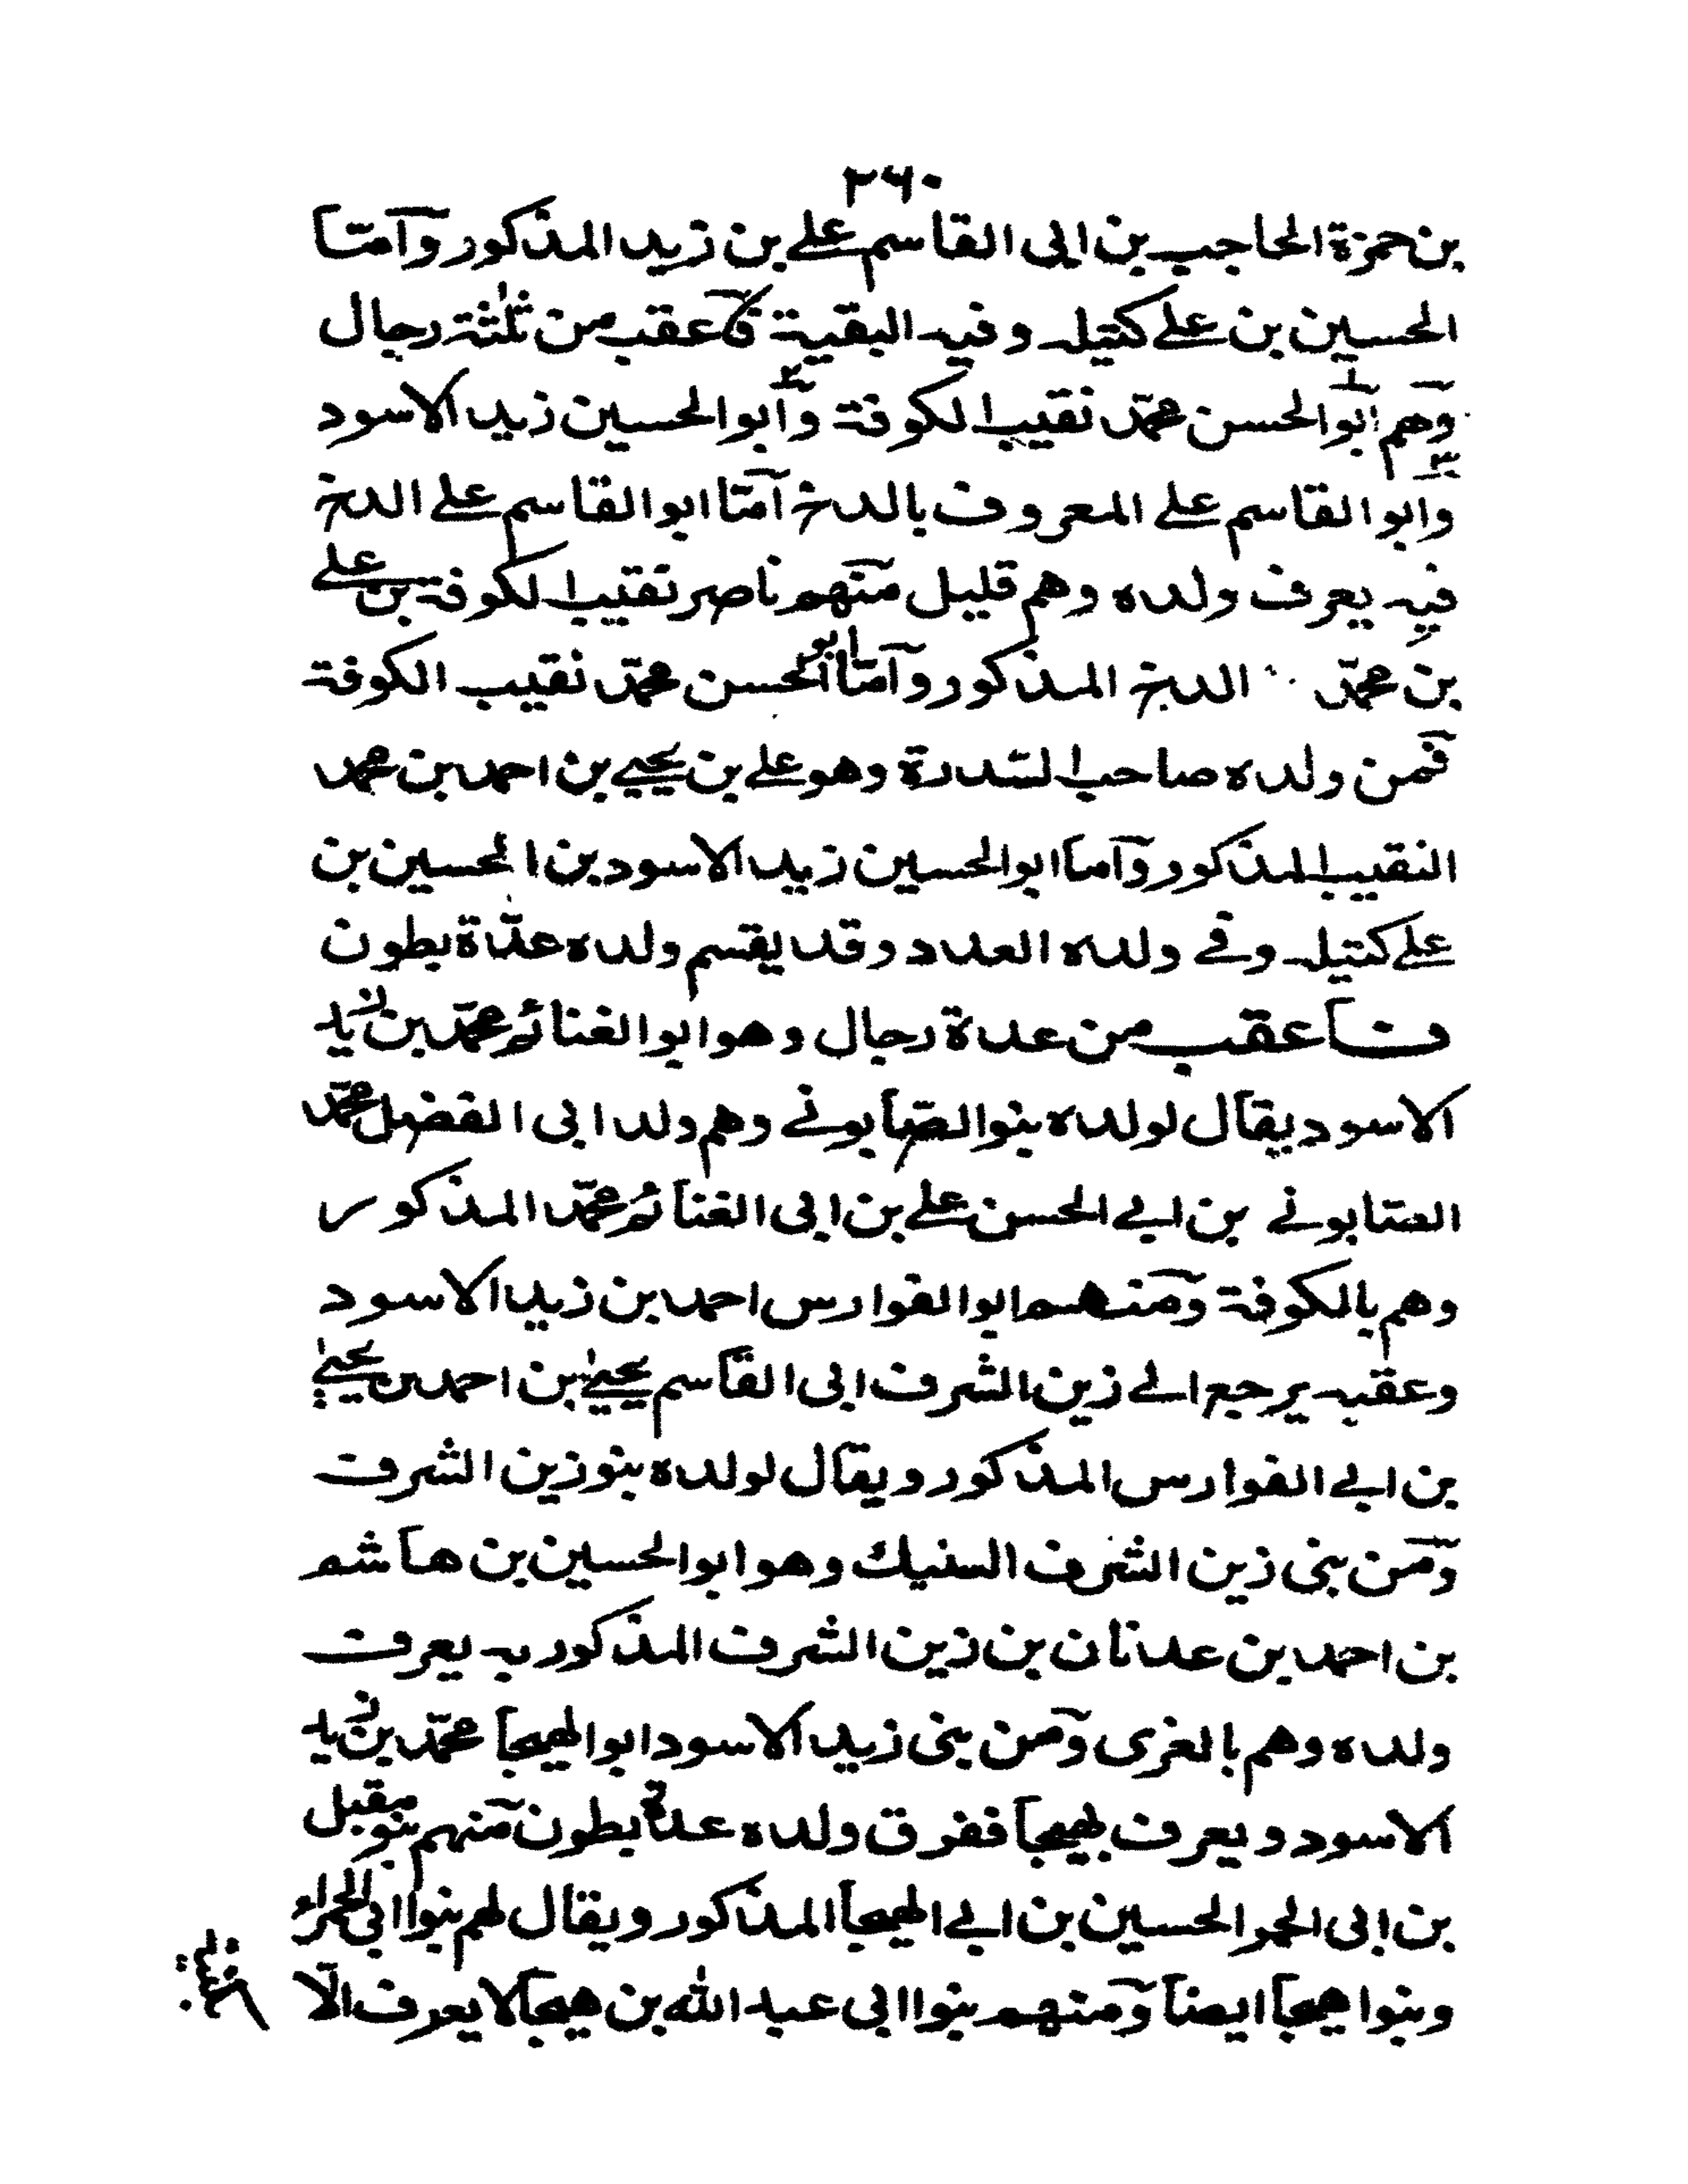 ٢٦٠
بن حمزة الحاجب بن ابى القاسم علے بن زيد المذكور وآمّا
الحسين بن علے كتيله وفيه البقية فآعقب من ثلٰثة رجال
وهم ابوالحسن محمّد نقيب الكوفة وآبوالحسين زيد الاسود
وابوالقاسم علے المعروف بالدخ آمّا ابوالقاسم علے الدخ
فيه يعرف ولده وهم قليل منهم ناصر نقيب الكوفة بن علے
بن محمّد الدخ المذكور وآمّا ابوالحسن محمّد نقيب الكوفة
فمن ولده صاحب السّدرة وهو علے بن يحيے بن احمد بن محمد
النقيب المذكور وآما ابوالحسين زيد الاسود بن الحسين بن
علے كتيله وفے ولده العدد وقد يقسم ولده عدّة بطون
فاعقب من عدة رجال وهو ابوالغنائم محمّد بن زيد
الاسود يقال لولده بنوالصّابونے وهم ولد ابى الفضل محمّد
الصّابونے بن ابے الحسن علے بن ابى الغنائم محمّد المذكور
وهم بالكوفة ومنهم ابوالفوارس احمد بن زيد الاسود
وعقبه يرجع الے زين الشرف ابى القاسم يحيےٰ بن احمد بن يحيےٰ
بن ابے الفوارس المذكور ويقال لولده بنو زين الشرف
ومن بنى زين الشرف السنيك وهو ابوالحسين بن هاشم
بن احمد بن عدنان بن زين الشرف المذكور به يعرف
ولده وهم بالغرى وآمن بنى زيد الاسود ابوالهيجا محمّد بن زيد
الاسود ويعرف بهيجا ففرق ولده عدة بطون منهم بنو مقبل
بن ابى الحمرا الحسين بن ابے الهيجا المذكور ويقال لهم بنوا ابى الحمراء
وبنوا هيجا ايضا ومنهم بنوا ابى عبد الله بن هيجا لا يعرف الّا